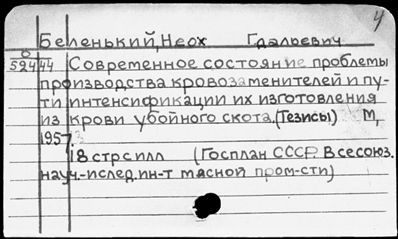 У
Беленький, Неох Гдальевич
0
52444 Современное состояние проблемы
производства кровозаменителей и пу-
ти интенсификации их изготовления
из крови убойного скота. (Тезисы) М,
1957.
18 стр с илл (Госплан СССР. Всесоюз.
науч.-ислед. ин-т мясной пром-сти)